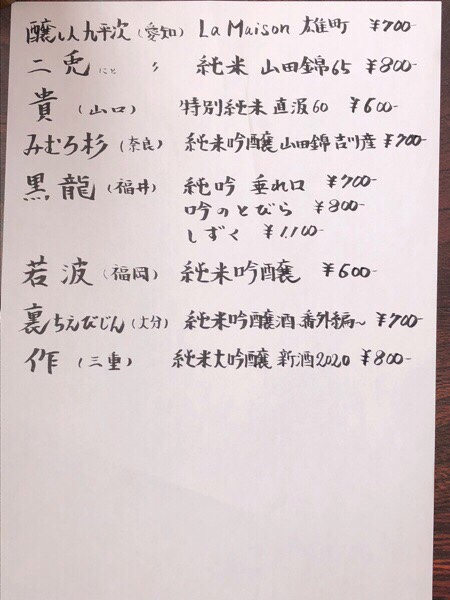 醸し人九平次 (愛知) La Maison 雄町 ¥700-
二兎 にと 〃 純米 山田錦65 ¥800-
貴 (山口) 特別純米 直汲60 ¥600-
みむろ杉 (奈良) 純米吟醸 山田錦 吉川産 ¥700-
黒龍 (福井) 純吟 垂れ口 ¥700-
吟のとびら ¥800-
しずく ¥1,100-
若波 (福岡) 純米吟醸 ¥600-
裏ちえびじん (大分) 純米吟醸酒 番外編〜 ¥700-
作 (三重) 純米大吟醸 新酒2020 ¥800-